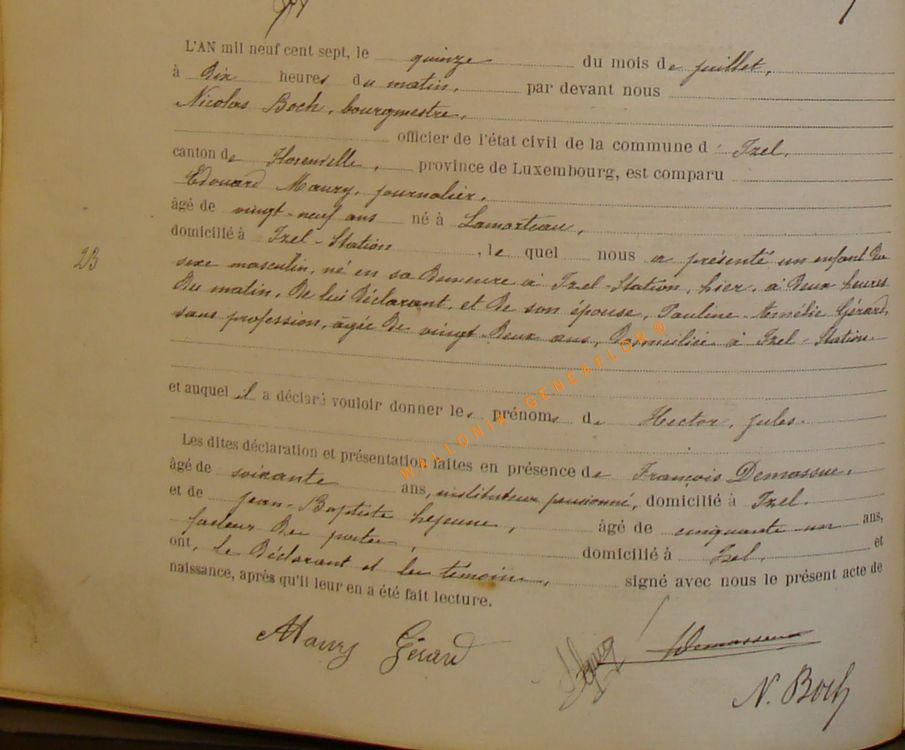 L'AN mil neuf cent sept, le quinze du mois de juillet,
à Dix heures du matin, par devant nous
Nicolas Boch, bourgmestre,
officier de l'état civil de la commune d' Izel,
canton de Florenville, province de Luxembourg, est comparu
Edouard Maury, journalier,
âgé de vingt-neuf ans né à Lamorteau,
domicilié à Izel-Station, le quel nous a présenté un enfant du
23
sexe masculin, né en sa demeure à Izel-Station, hier, à deux heures
du matin, de lui déclarant, et de son épouse, Pauline Amélie Gérard,
sans profession, âgée de vingt-deux ans, domiciliée à Izel-Station.
et auquel il a déclaré vouloir donner les prénoms de Hector, Jules.
Les dites déclaration et présentation faites en présence de François Demasseux,
âgé de soixante ans, instituteur pensionné, domicilié à Izel.
et de Jean-Baptiste Lejeune, âgé de cinquante un ans,
facteur des postes, domicilié à Izel, et
ont, le déclarant et les témoins, signé avec nous le présent acte de
naissance, après qu'il leur en a été fait lecture.
Maury Gérard
Demasseux
N. Boch
WALLONIA-GENEAFLOR9